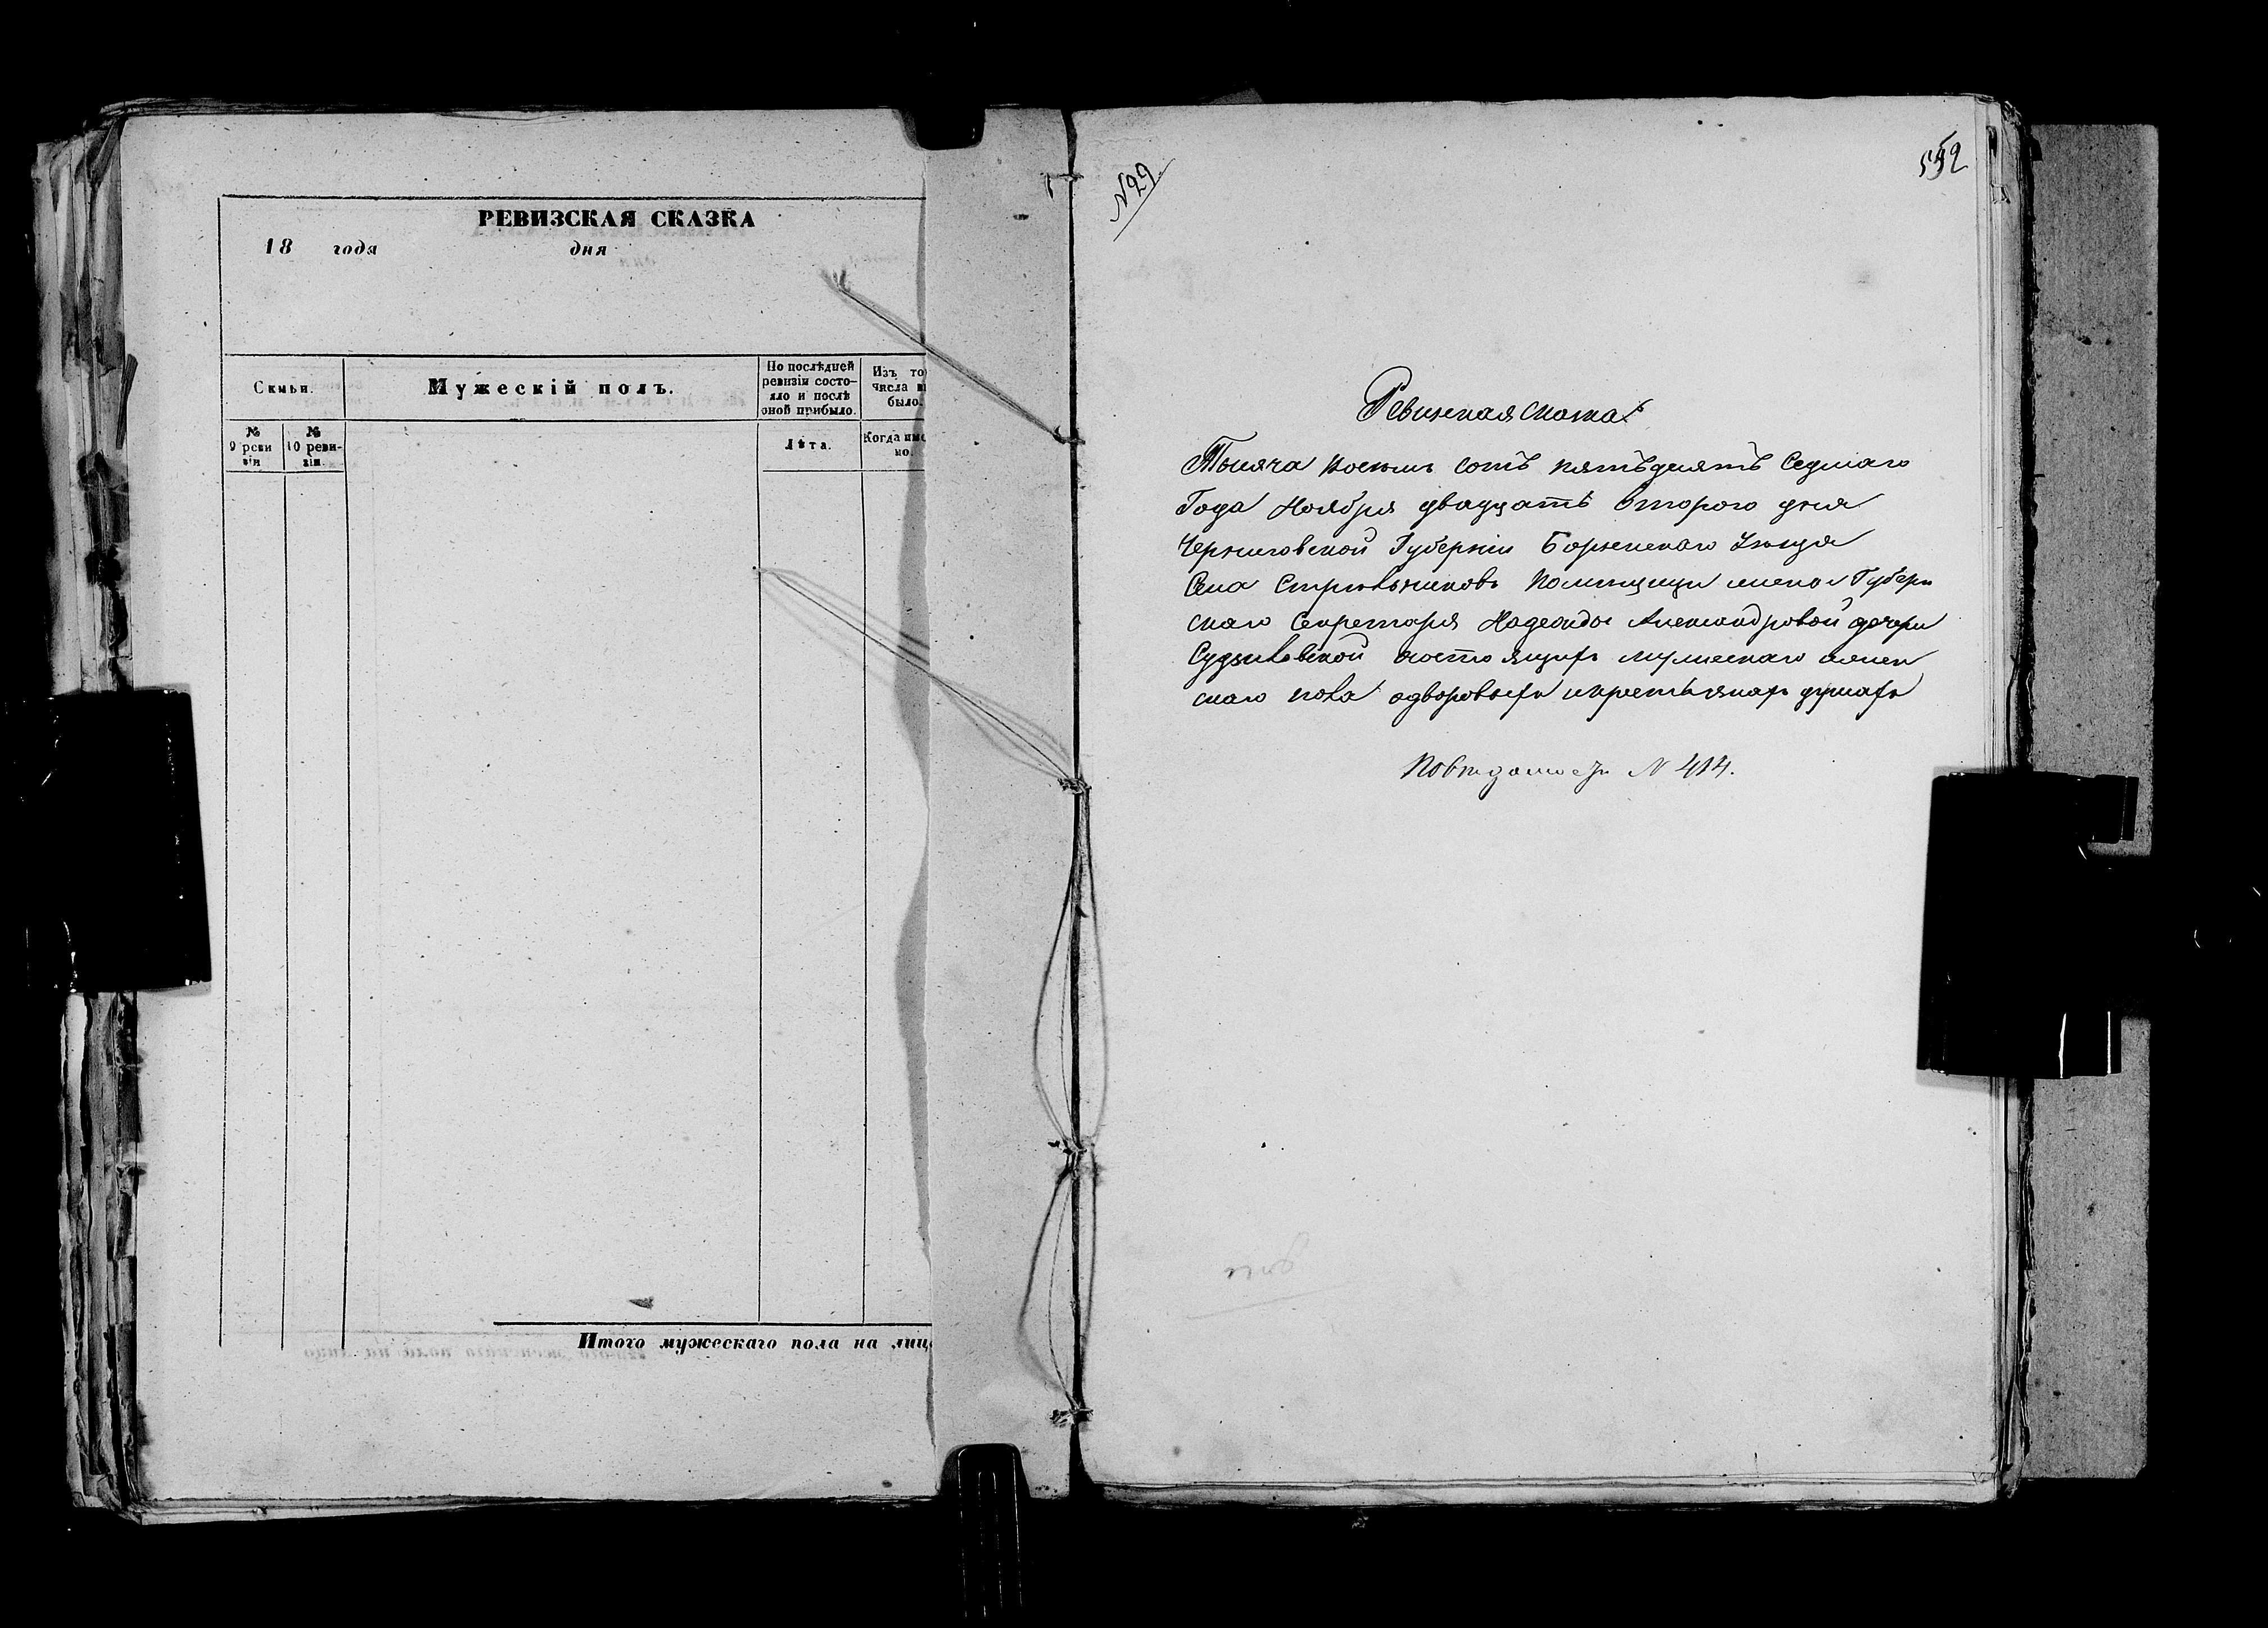 РЕВИЗСКАЯ СКАЗКА
18 года дня
Скмьи.
Мужескій полъ.
По послѣдней ревизіи состо-
яло и послѣ
оной прибыло.
Изъ то
числа в
было.
№
9 реви
зіи
№
10 реви-
зіи.
Лѣта.
Когда име
но.
Итого мужескаго пола на лиц
№ 29
552
Ревизская сказка
Тысяча восемь сотъ пятьдесятъ седмаго
Года Ноября двадцать второго дня
Черниговской Губерніи Борзенскаго Уѣзда
Села Стрѣльниковъ помѣщицы жены Губерн
скаго Секретаря Надежды Александровой дочери
состоящихъ мужескаго и женс
скаго пола одворовыхъ и крестьянахъ душахъ
№ 414.